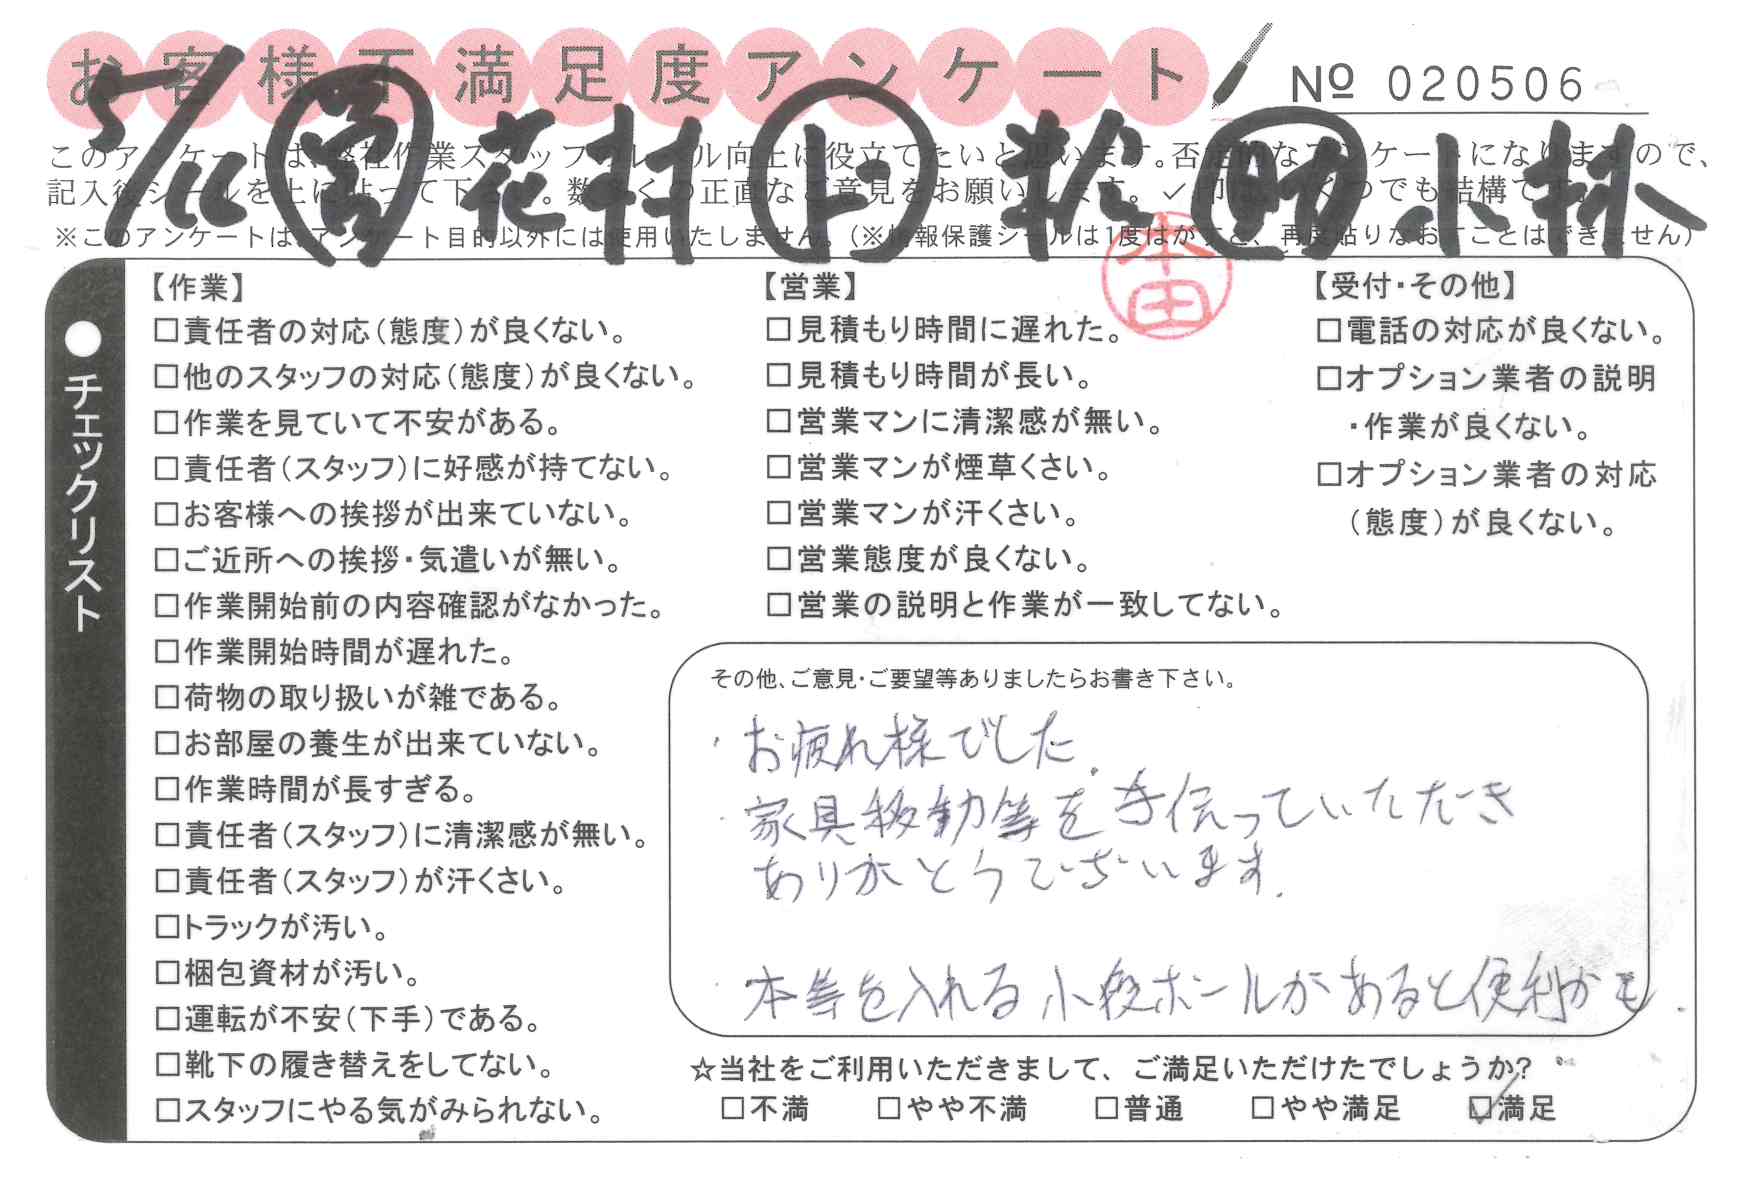 お客様不満足度アンケート
№ 020506
5/12 営 花村 ト 松 助 小林
このアンケートは、弊社作業スタッフのレベル向上に役立てたいと思います。否定的なアンケートになりますので、
記入後シールを上に貼って下さい。数多くの正直なご意見をお願いします。✓印はいくつでも結構です。
※このアンケートは、アンケート目的以外には使用いたしません。(※情報保護シールは1度はがすと、再度貼りなおすことはできません)
本田
●チェックリスト
【作業】
□責任者の対応(態度)が良くない。
□他のスタッフの対応(態度)が良くない。
□作業を見ていて不安がある。
□責任者(スタッフ)に好感が持てない。
□お客様への挨拶が出来ていない。
□ご近所への挨拶・気遣いが無い。
□作業開始前の内容確認がなかった。
□作業開始時間が遅れた。
□荷物の取り扱いが雑である。
□お部屋の養生が出来ていない。
□作業時間が長すぎる。
□責任者(スタッフ)に清潔感が無い。
□責任者(スタッフ)が汗くさい。
□トラックが汚い。
□梱包資材が汚い。
□運転が不安(下手)である。
□靴下の履き替えをしてない。
□スタッフにやる気がみられない。
【営業】
□見積もり時間に遅れた。
□見積もり時間が長い。
□営業マンに清潔感が無い。
□営業マンが煙草くさい。
□営業マンが汗くさい。
□営業態度が良くない。
□営業の説明と作業が一致してない。
【受付・その他】
□電話の対応が良くない。
□オプション業者の説明
・作業が良くない。
□オプション業者の対応
(態度)が良くない。
その他、ご意見・ご要望等ありましたらお書き下さい。
・お疲れ様でした.
・家具移動等を手伝っていただき
ありがとうございます.
・本等を入れる小段ボールがあると便利かも.
☆当社をご利用いただきまして、ご満足いただけたでしょうか?
□不満 □やや不満 □普通 □やや満足 ☑満足